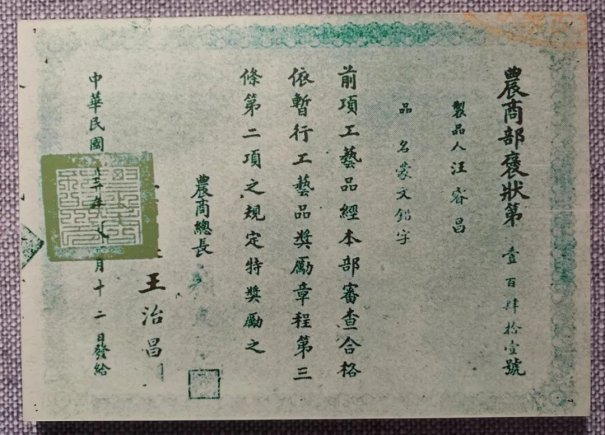 農商部褒狀第壹百肆拾壹號
製品人汪睿昌
品名蒙文鉛字
前項工藝品經本部審查合格
依暫行工藝品奬勵章程第三
條第二項之規定特奬勵之
農商總長
王治昌
中華民國十三年八月十二日發給